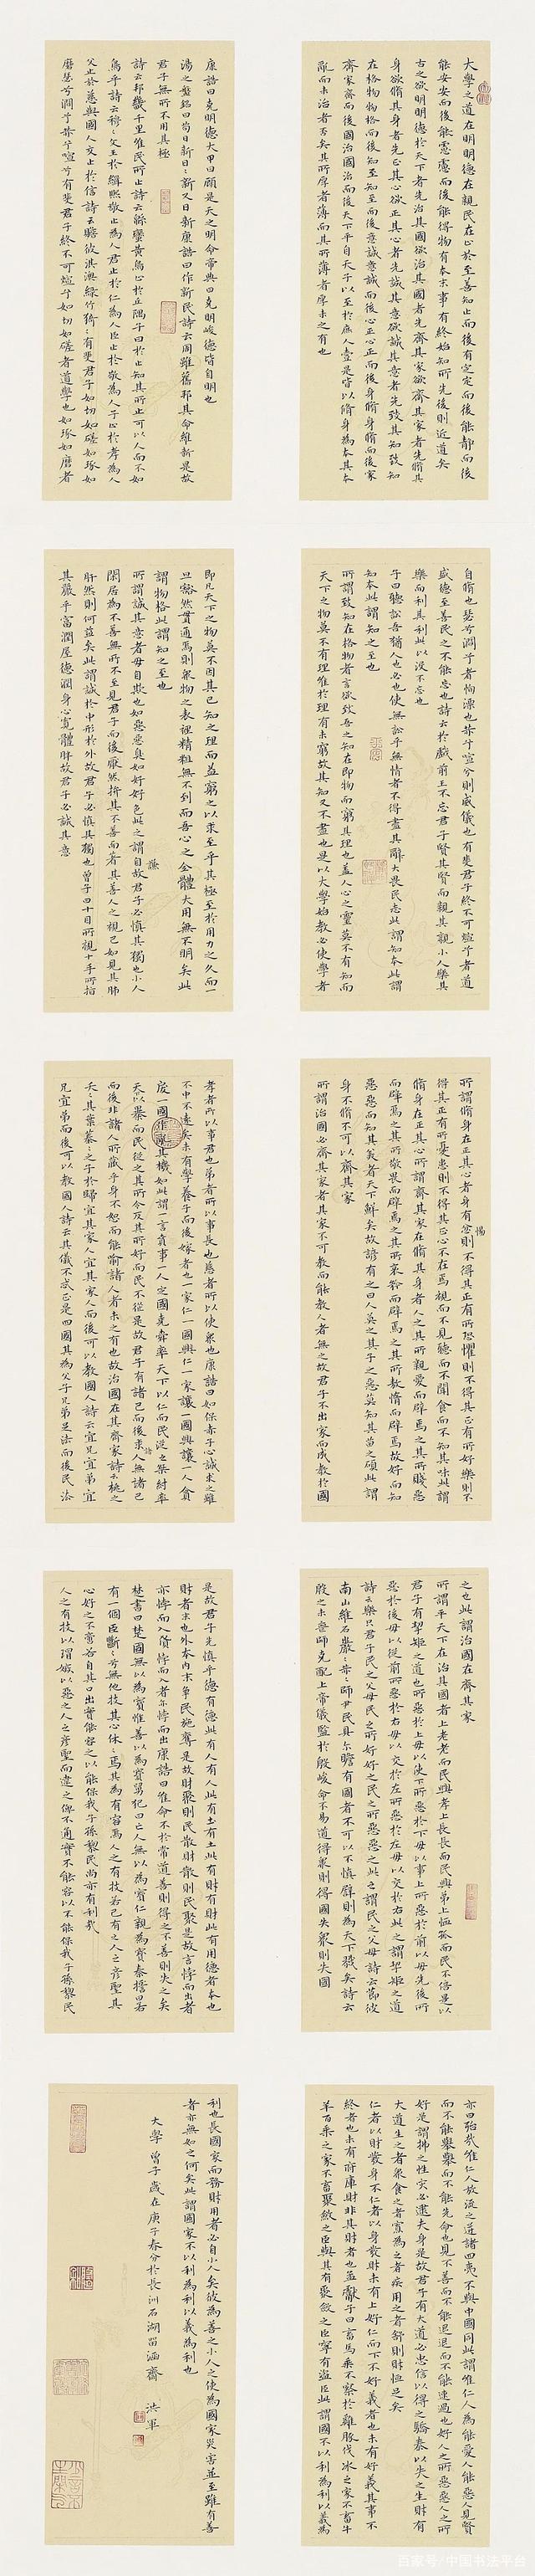 大學之道在明明德在親民在止於至善知止而後有定定而後能靜而後
能安安而後能慮慮而後能得物有本末事有終始知所先後則近道矣
古之欲明明德於天下者先治其國欲治其國者先齊其家欲齊其家者先脩其
身欲脩其身者先正其心欲正其心者先誠其意欲誠其意者先致其知致知
在格物物格而後知至知至而後意誠意誠而後心正心正而後身脩身脩而後家
齊家齊而後國治國治而後天下平自天子以至於庶人壹是皆以脩身為本其本
亂而末治者否矣其所厚者薄而其所薄者厚未之有也
康誥曰克明德大甲曰顧是天之明命帝典曰克明峻德皆自明也
湯之盤銘曰苟日新日〻新又日新康誥曰作新民詩云周雖舊邦其命維新是故
君子無所不用其極
詩云邦畿千里惟民所止詩云緜蠻黃鳥止於丘隅子曰於止知其所止可以人而不如
鳥乎詩云穆〻文王於緝熙敬止為人君止於仁為人臣止於敬為人子止於孝為人
父止於慈與國人交止於信詩云瞻彼淇澳綠竹猗〻有斐君子如切如磋如琢如
磨瑟兮澗兮赫兮喧兮有斐君子終不可諠兮如切如磋者道學也如琢如磨者
自脩也瑟兮澗兮者恂慄也赫兮喧兮則威儀也有斐君子終不可諠兮者道
盛德至善民之不能忘也詩云於戲前王不忘君子賢其賢而親其親小人樂其
樂而利其利此以沒不忘也
子曰聽訟吾猶人也必也使無訟乎無情者不得盡其辭大畏民志此謂知本此謂
知本此謂知之至也
所謂致知在格物者言欲致吾之知在即物而窮其理也蓋人心之靈莫不有知而
天下之物莫不有理惟於理有未窮故其知又不盡也是以大學始教必使學者
即凡天下之物莫不因其已知之理而益窮之以求至乎其極至於用力之久而一
旦豁然貫通焉則眾物之表裡精粗無不到而吾心之全體大用無不明矣此
謂物格此謂知之至也
所謂誠其意者毋自欺也如惡惡臭如好好色此之謂自謙故君子必慎其獨也小人
閑居為不善無所不至見君子而後厭然揜其不善而著其善人之視己如見其肺
肝然則何益矣此謂誠於中形於外故君子必慎其獨也曾子曰十目所視十手所指
其嚴乎富潤屋德潤身心寬體胖故君子必誠其意
所謂脩身在正其心者身有忿則不得其正有所恐懼則不得其正有所好樂則不
得其正有所憂患則不得其正心不在焉視而不見聽而不聞食而不知其味此謂
脩身在正其心所謂齊其家在脩其身者人之其所親愛而辟焉之其所賤惡
而辟焉之其所敬畏而辟焉之其所哀矜而辟焉之其所敖惰而辟焉故好而知
惡惡而知其美者天下鮮矣故諺有之曰人莫之其子之惡莫知其苗之碩此謂
身不脩不可以齊其家
所謂治國必齊其家者其家不可教而能教人者無之故君子不出家而成教於國
孝者所以事君也弟者所以事長也慈者所以使眾也康誥曰如保赤子心誠求之雖
不中不遠矣未有學養子而後嫁者也一家仁一國興仁一家讓一國興讓一人貪
戾一國作亂其機如此謂一言僨事一人定國堯舜率天下以仁而民從之桀紂率
天下以暴而民從之其所令反其所好而民不從是故君子有諸己而後求諸人無諸己
而後非諸人所藏乎身不恕而能喻諸人者未之有也故治國在其齊家詩云桃之
夭〻其葉蓁〻之子於歸宜其家人宜其家人而後可以教國人詩云宜兄宜弟宜
兄宜弟而後可以教國人詩云其儀不忒正是四國其為父子兄弟足法而後民法
之也此謂治國在齊其家
所謂平天下在治其國者上老老而民興孝上長長而民興弟上恤孤而民不倍是以
君子有挈矩之道也所惡於上毋以使下所惡於下毋以事上所惡於前以毋先後所
惡於後毋以從前所惡於右毋以交於左所惡於左毋以交於右此之謂挈矩之道
詩云樂只君子民之父母民之所好好之民之所惡惡之此之謂民之父母詩云節彼
南山維石巖〻赫〻師尹民具爾瞻有國者不可以不慎辟則為天下戮矣詩云
殷之未喪師克配上帝儀監於殷峻命不易道得眾則得國失眾則失國
是故君子先慎乎德有德此有人有人此有土有土此有財有財此有用德者本也
財者末也外本內末爭民施奪是故財聚則民散財散則民聚是故言悖而出者
亦悖而入貨悖而入者亦悖而出康誥曰惟命不於常道善則得之不善則失之矣
楚書曰楚國無以為寶惟善以為寶舅犯曰亡人無以為寶仁親為寶秦誓曰若
有一個臣斷〻兮無他技其心休〻焉其為有容焉人之有技若己有之人之彥聖其
心好之不啻若自其口出寔能容之以能保我子孫黎民尚亦有利哉
人之有技以瑁嫉以惡之人之彥聖而違之俾不通寔不能容以不能保我子孫黎民
亦曰殆哉惟仁人放流之迸諸四夷不與中國同此謂惟仁人為能愛人能惡人見賢
而不能舉舉而不能先命也見不善而不能退退而不能遠過也好人之所惡惡人之所
好是謂拂之性災必逮夫身是故君子有大道必忠信以得之驕泰以失之生財有
大道生之者眾食之者寡為之者疾用之者舒則財恆足矣
仁者以財發身不仁者以身發財未有上好仁而下不好義者也未有好義其事不
終者也未有府庫財非其財者也孟獻子曰畜馬乘不察於雞豚伐冰之家不畜牛
羊百乘之家不畜聚斂之臣與其有聚斂之臣寧有盜臣此謂國不以利為利以義為
利也長國家而務財用者必自小人矣彼為善之小人之使為國家災害並至雖有善
者亦無如之何矣此謂國家不以利為利以義為利也
大學 曾子 歲在庚子春分於長洲石湖留涵齋 洪軍
百家号/中国书法平台